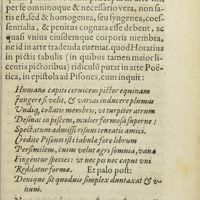 per se omninoque & necessario vera, non sa-
tis est, sed & homogenea, seu syngenea, coes-
sentialia, & penitus cognata esse debent, ac
quasi vnius eiusdemque corporis membra,
ne id in arte tradenda eueniat quod Horatius
in pictis tabulis (in quibus tamen maior li-
centia pictoribus) ridiculū putat in arte Poë-
tica, in epistola ad Pisones, cum inquit:
Humano capiti ceruicem pictor equinam
Iungere si velit, & varias inducere plumas
Vndiq, collatis membris, vt turpiter atrum
Desinat in piscem, mulier formosa superne:
Spectatum admissi risum teneatis amici.
Credite Pisones isti tabulæ fore librum
Persimilem, cuius velut ægri somnia, vanæ
Fingentur species: vt nec pes nec caput vni
Reddatur formæ. Et palo post:
Denique sit quoduis simplex duntaxat & v-
num.